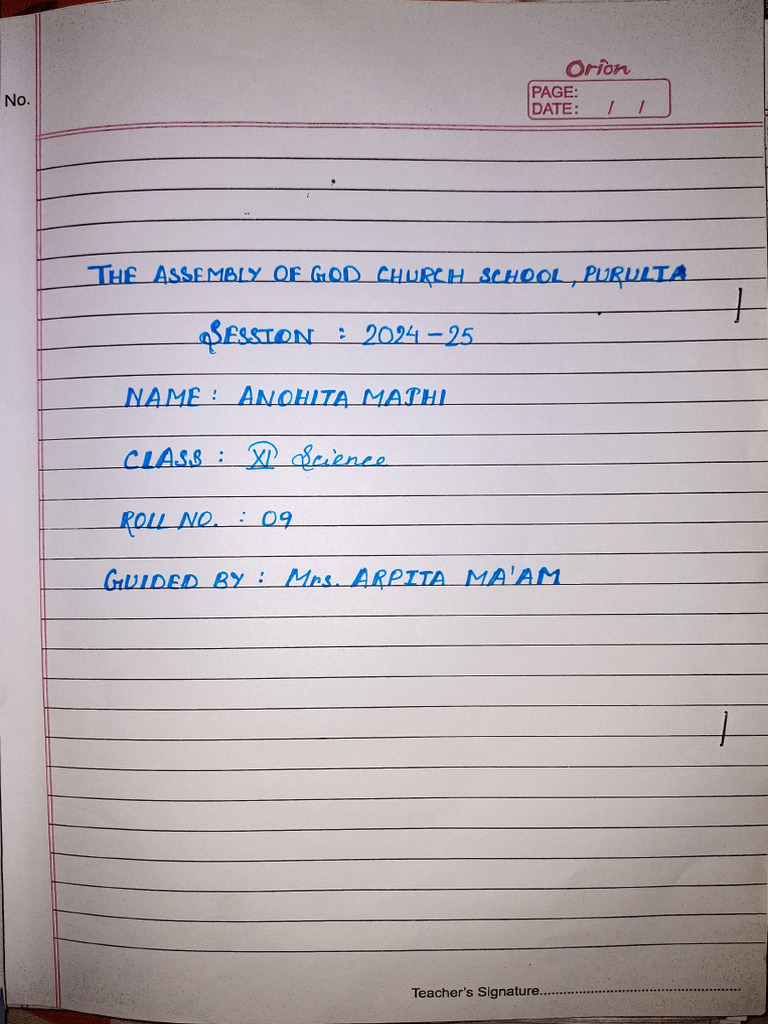 Orion
No.
PAGE:
DATE: / /
THE ASSEMBLY OF GOD CHURCH SCHOOL, PURULIA
SESSION : 2024-25
NAME : ANOHITA MAJHI
CLASS : XI Science
ROLL NO. : 09
GUIDED BY : Mrs. ARPITA MA'AM
Teacher's Signature